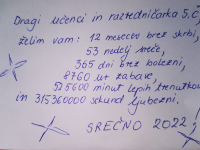 Dragi učenci in razredničarka 5.č,
želim vam: 12 mesecev brez skrbi,
53 nedelj sreče,
365 dni brez bolezni,
8760 ur zabave,
525600 minut lepih trenutkov
in 315360000 sekund ljubezni.
SREČNO 2022!